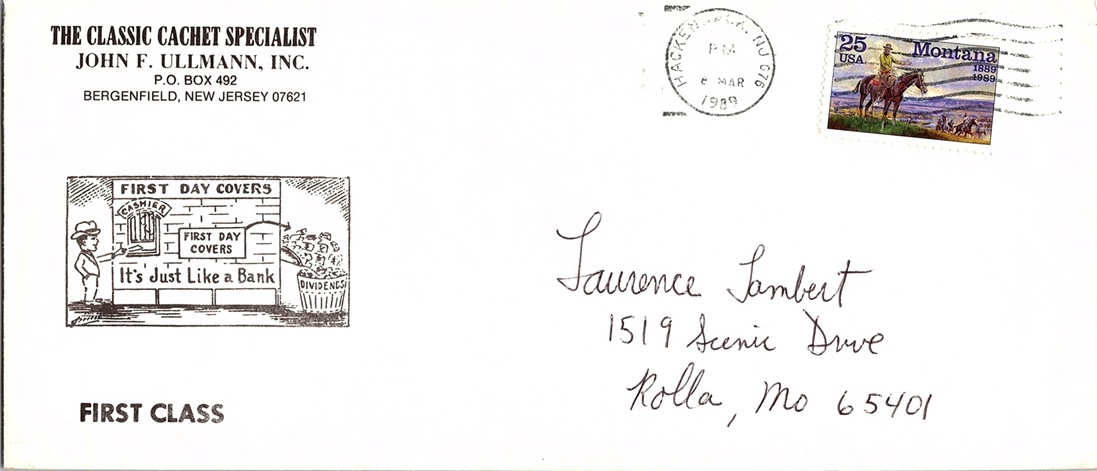 THE CLASSIC CACHET SPECIALIST
JOHN F. ULLMANN, INC.
P.O. BOX 492
BERGENFIELD, NEW JERSEY 07621
HACKENSACK, NJ 076
PM
8 MAR
1989
25
USA
Montana
1889
1989
FIRST DAY COVERS
CASHIER
FIRST DAY
COVERS
It's Just Like a Bank
DIVIDENDS
FIRST CLASS
Laurence Lambert
1519 Scenic Drive
Rolla, Mo 65401